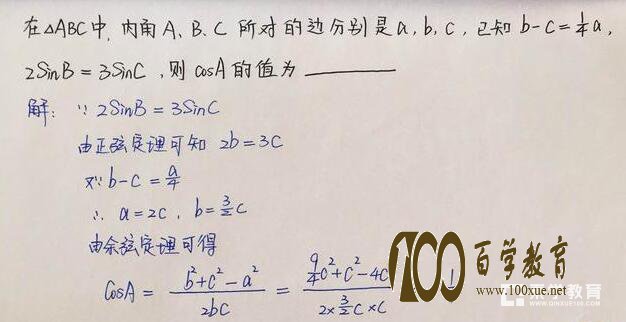 在△ABC中,内角A、B、C所对的边分别是a,b,c,已知b-c=1/4a,
2SinB=3SinC,则cosA的值为________
解:∵2SinB=3SinC
由正弦定理可知 2b=3c
又∵b-c=a/4
∴a=2c,b=3/2c
由余弦定理可得
CosA=(b²+c²-a²)/(2bc)=(9/4c²+c²-4c)/(2×3/2c×c)
100百学教育
www.100xue.net
乐学教育